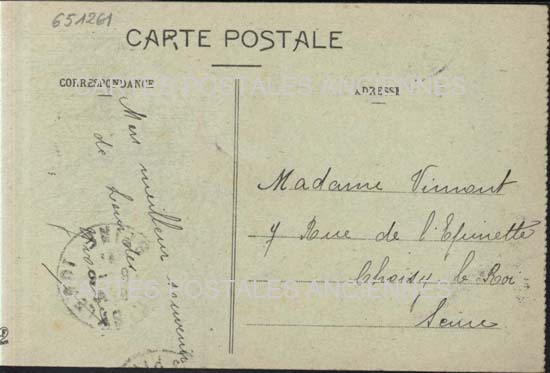 651261
CARTE POSTALE
CORRESPONDANCE
ADRESSE
CARTES POSTALES ANCIENNES
Mes meilleurs souvenirs
de Lourdes
Madame Vimont
7 Rue de l'Epinette
Choisy le Roi
Seine
CARTES POSTALES ANCIENNES